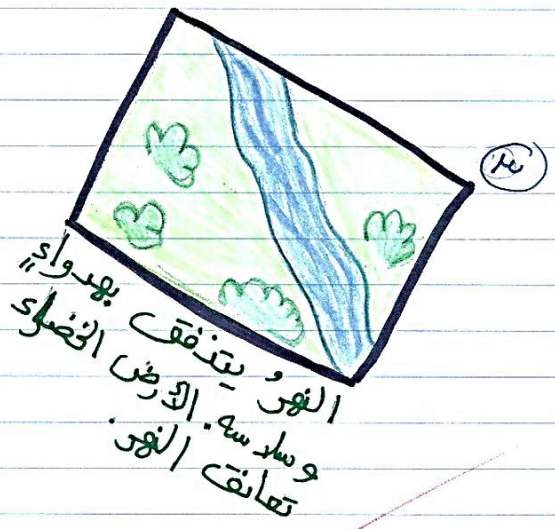 ٣
النهرُ يتدفق بهدواءٍ
وسلاسه. الأرض الخضراء
تعانق النهر.